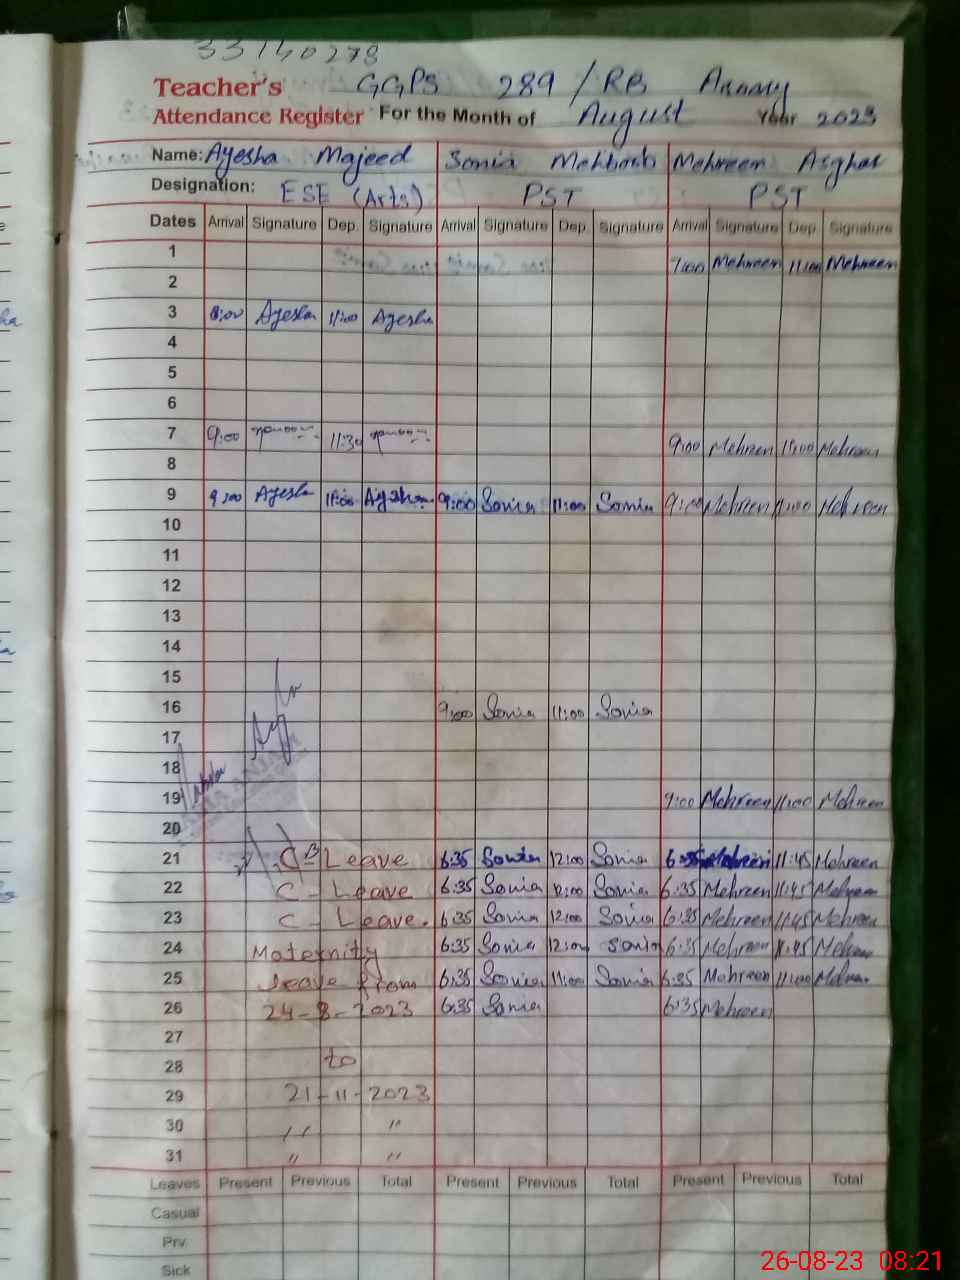 33140278
Teacher's GGPS 289/RB
Attendance Register For the Month of August Year 2023
Name: Ayesha Majeed Sonia Mehboob Mehreen Asghar
Designation: ESE (Arts) PST PST
Dates Arrival Signature Dep. Signature Arrival Signature Dep. Signature Arrival Signature Dep. Signature
1 7:00 Mehreen 11:00 Mehreen
2
3 8:00 Ayesha 11:00 Ayesha
4
5
6
7 9:00 11:30 9:00 Mehreen 11:00 Mehreen
8
9 9:00 Ayesha 11:00 Ayesha 9:00 Sonia 11:00 Sonia 9:00 Mehreen 11:00 Mehreen
10
11
12
13
14
15
16 9:00 Sonia 11:00 Sonia
17
18
19 9:00 Mehreen 11:00 Mehreen
20
21 C - Leave 6:35 Sonia 12:00 Sonia 6:35 Mehreen 11:45 Mehreen
22 C - Leave 6:35 Sonia 12:00 Sonia 6:35 Mehreen 11:45 Mehreen
23 C - Leave. 6:35 Sonia 12:00 Sonia 6:35 Mehreen 11:45 Mehreen
24 Maternity 6:35 Sonia 12:00 Sonia 6:35 Mehreen 11:45 Mehreen
25 Leave from 6:35 Sonia 11:00 Sonia 6:35 Mehreen 11:00 Mehreen
26 24-8-2023 6:35 Sonia 6:35 Mehreen
27
28 to
29 21-11-2023
30 " "
31 " "
Leaves Present Previous Total Present Previous Total Present Previous Total
Casual
Prv.
Sick
26-08-23 08:21